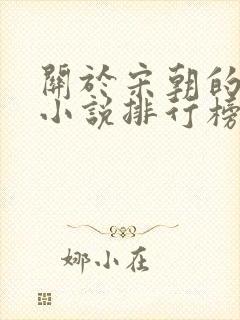 關於宋朝的
小說排行榜
娜小在